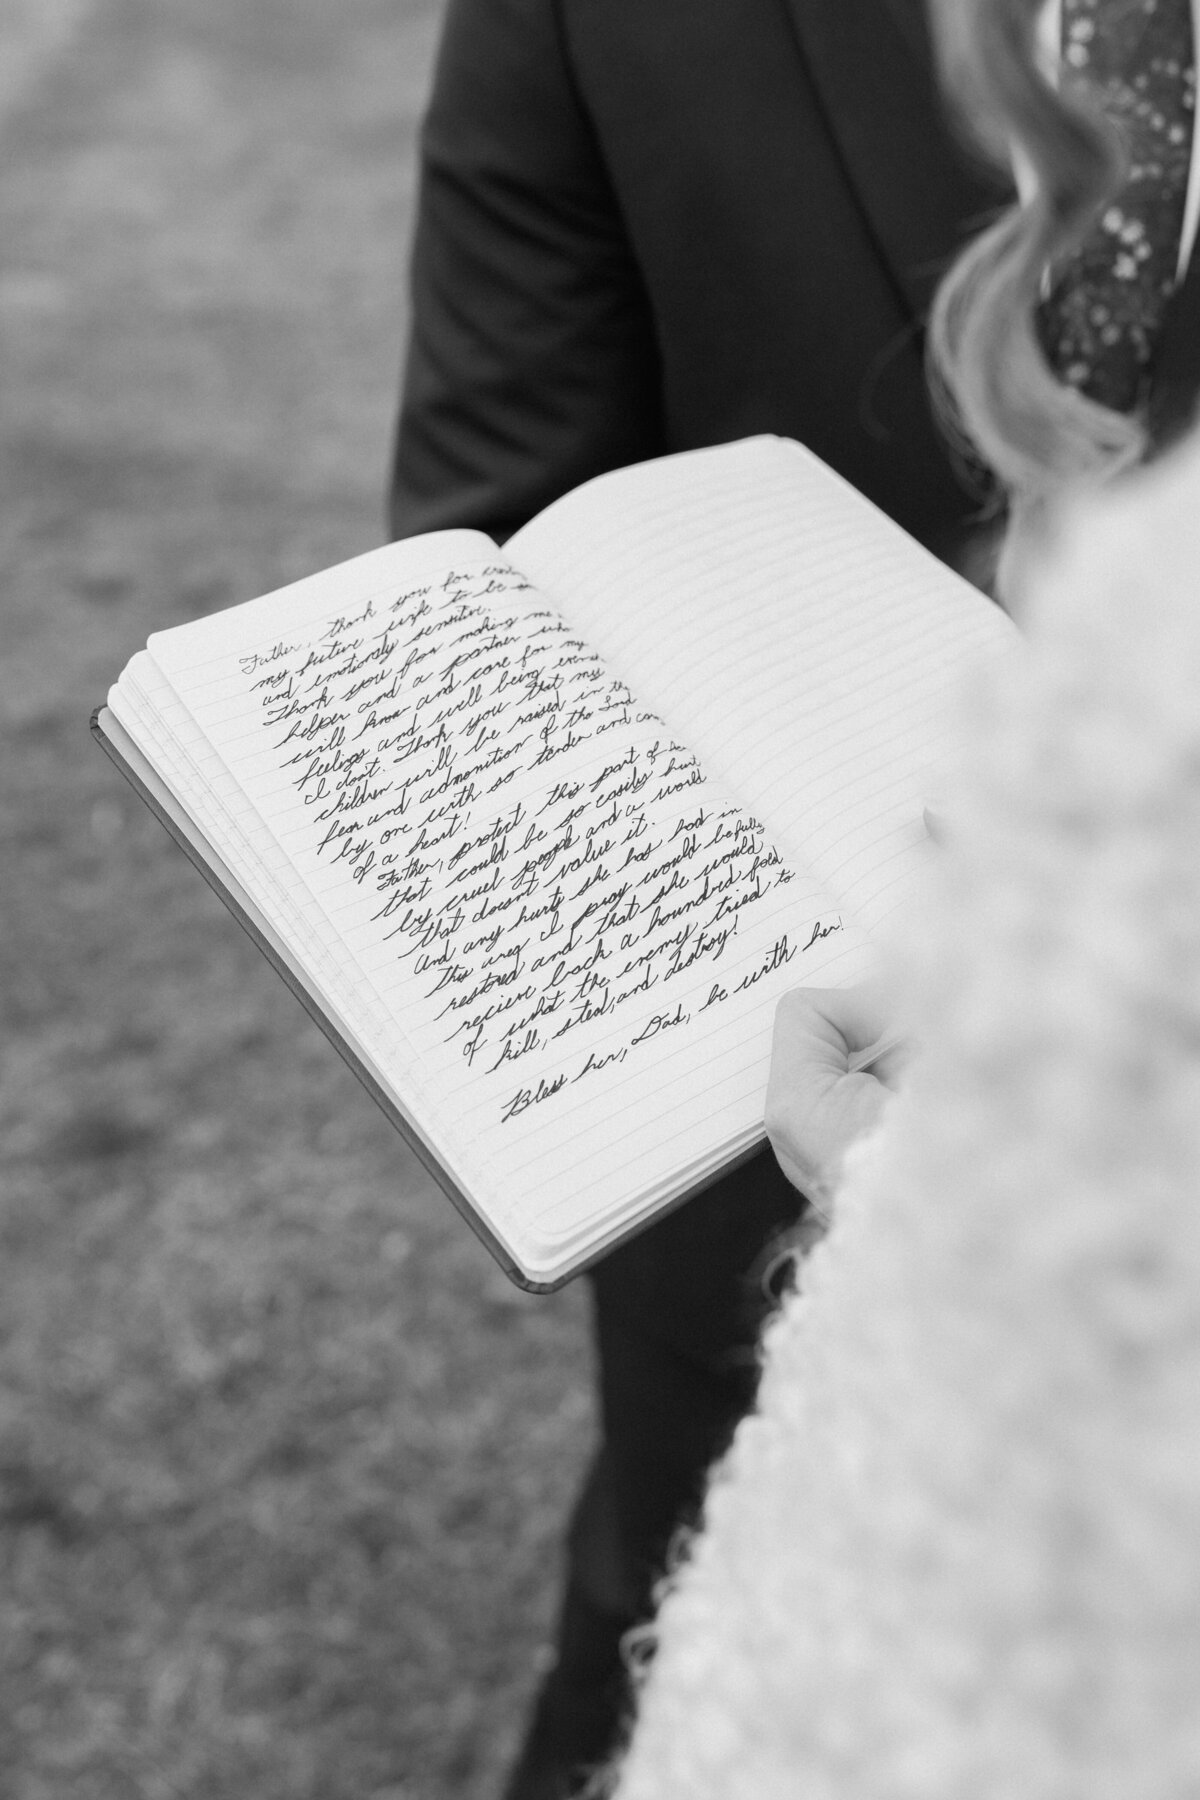 Father, thank you for
my future wife to be
and emotionally sensitive.
Thank you for making me
helper and a partner who
will know and care for my
feelings and well being even
I don't. Thank you that my
children will be raised in the
fear and admonition of the Lord
by one with so tender and
of a heart!
Father, protect this part of
that could be so easily hurt
by cruel people and a world
that doesnt value it.
And any hurts she has had in
this area I pray would be fully
restored and that she would
recieve back a houndred fold
of what the enemy tried to
kill, steal, and destroy!
Bless her, Dad, be with her!